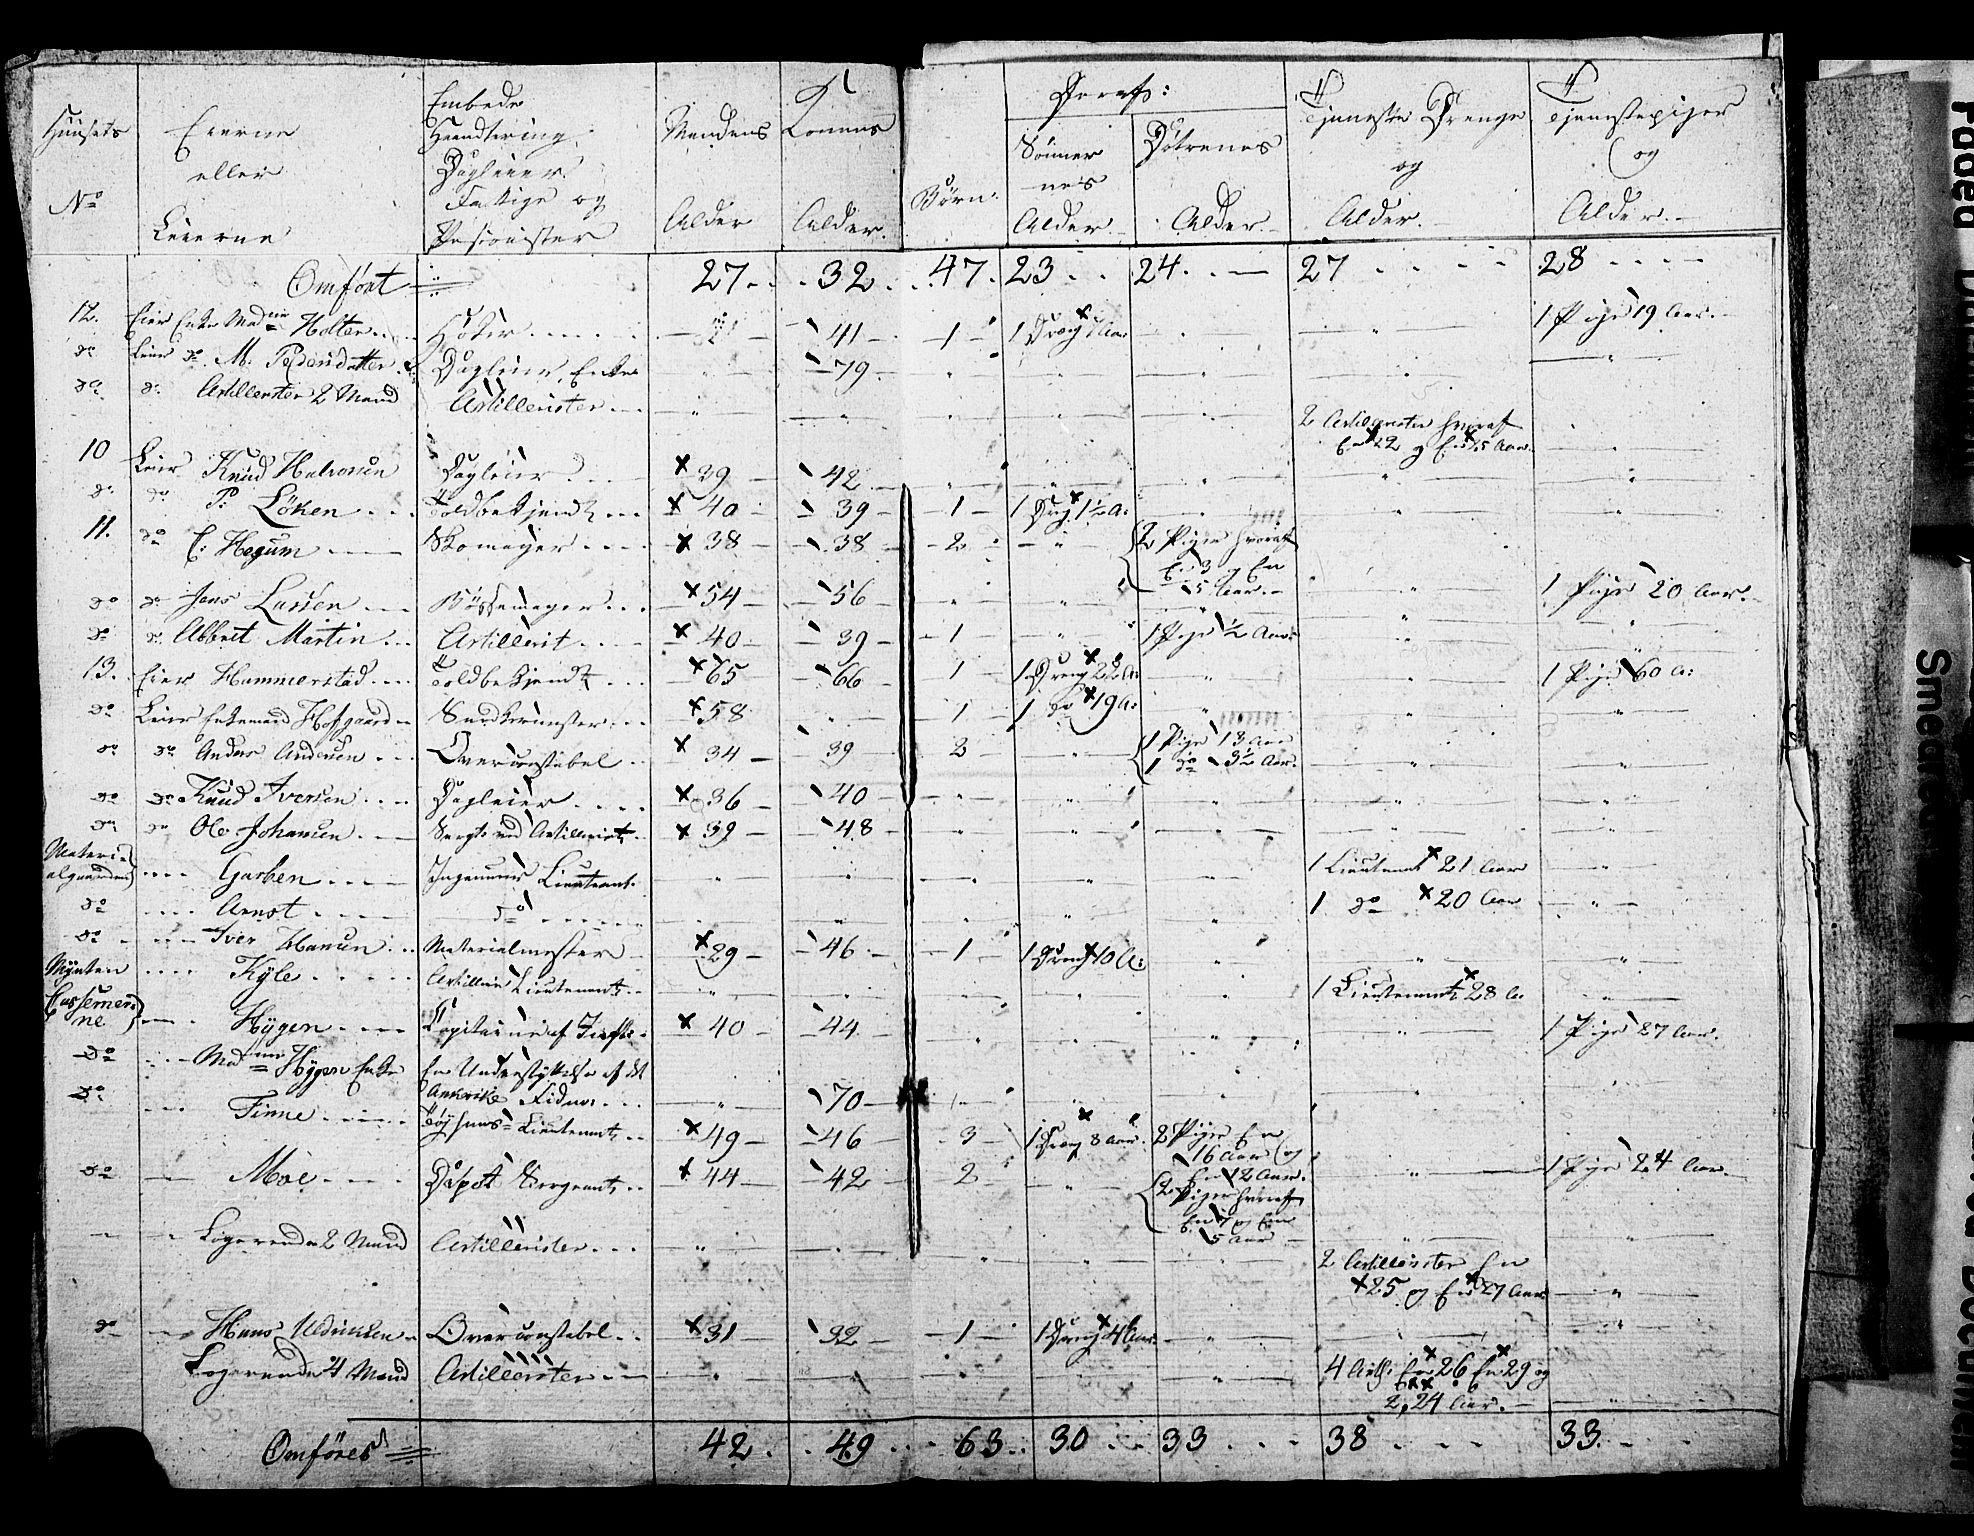 Huusets No | Eierne eller Leierne | Embede Haandtering Dagleier Fattige og | Mandens Alder | Konens Alder | Börn: | Deraf: Sönnernes Alder | Döttrenes Alder | Tjeneste Drenge og Alder. | Tjenestepiger og Alder.
Omfört | 27 | 32 | 47 | 23 | 24 | 27 | 28
12. | Eier Enke Mad Holter | Höker | " | 41 | 1 | 1 Dreng 7 Aar | " | " | 1 Pige 19 Aar
do | Leier do M. Pedersdatter | Dagleier Enke | " | 79 | " | " | " | " | "
do | do Artillerister 2 Mand | Artillerister | " | " | " | " | " | 2 Artillerister hvoraf En 22 og En 25 Aar. | "
10 | Leier Knud Halvorsen | Dagleier | 39 | 42 | " | " | " | " | "
do | do P. Löken | Toldbetjendt | 40 | 39 | 1 | 1 Dreng 1½ A: | " | " | "
11. | do C: Hegum | Skomager | 38 | 38 | 2 | " | 2 Piger hvoraf En 3 og En 5 Aar. | " | "
do | do Jens Lassen | Bössemager | 54 | 56 | " | " | " | " | 1 Pige 20 Aar.
do | do Albret Martin | Artillerist | 40 | 39 | 1 | " | 1 Pige ½ Aar | " | "
13. | Eier Hammerstad | Toldbetjendt | 65 | 66 | 1 | 1 Dreng 22 A: | " | " | 1 Pige 60 A:
do | Leier Enkemand Hofgaard | | 58 | " | 1 | 1 do 19 A: | " | " | "
do | do Anders Andersen | Overconstabel | 34 | 39 | 2 | " | 1 Pige 13 Aar 1 do 3½ Aar. | " | "
do | do Knud Iversen | Dagleier | 36 | 40 | " | " | " | " | "
do | do Ole Johansen | Sergt: ved Artilleriet | 39 | 48 | " | " | " | " | "
Materialgaarden | Garben | Ingenieur Lieutenant | " | " | " | " | " | 1 Lieutenant 21 Aar | "
do | Arnst | do | " | " | " | " | " | 1 do 20 Aar | "
do | Iver Hansen | Materialmester | 29 | 46 | 1 | 1 Dreng 10 A: | " | " | "
Mynten | Kyle | Artillerie Lieutenant | " | " | " | " | " | 1 Lieutenant 28 A. | "
Cassernerne | Hygen | Capitaine af | 40 | 44 | " | " | " | " | 1 Pige 27 Aar.
do | Mad Hygen Enke | En Understyttelse af det | " | 70 | " | " | " | " | "
do | Finne | Töyhuus-Lieutenant | 49 | 46 | 3 | 1 Dreng 8 Aar. | 2 Piger En 16 Aar og En 12 Aar. | " | "
do | Moe | Depot Sergeant | 44 | 42 | 2 | " | 2 Piger hvoraf En 7 og En 5 Aar | " | 1 Pige 24 Aar
Logerende 2 Mand | Artillerister | " | " | " | " | " | 2 Artillerister En 25 og En 27 Aar | "
do | Hans | Overconstabel | 31 | 32 | 1 | 1 Dreng 4 Aar. | " | " | "
Logerende 4 Mand | Artillerister | " | " | " | " | " | 4 Artl: En 26 En 29 og 2, 24 Aar. | "
Omföres | 42 | 49 | 63 | 30 | 33 | 38 | 33